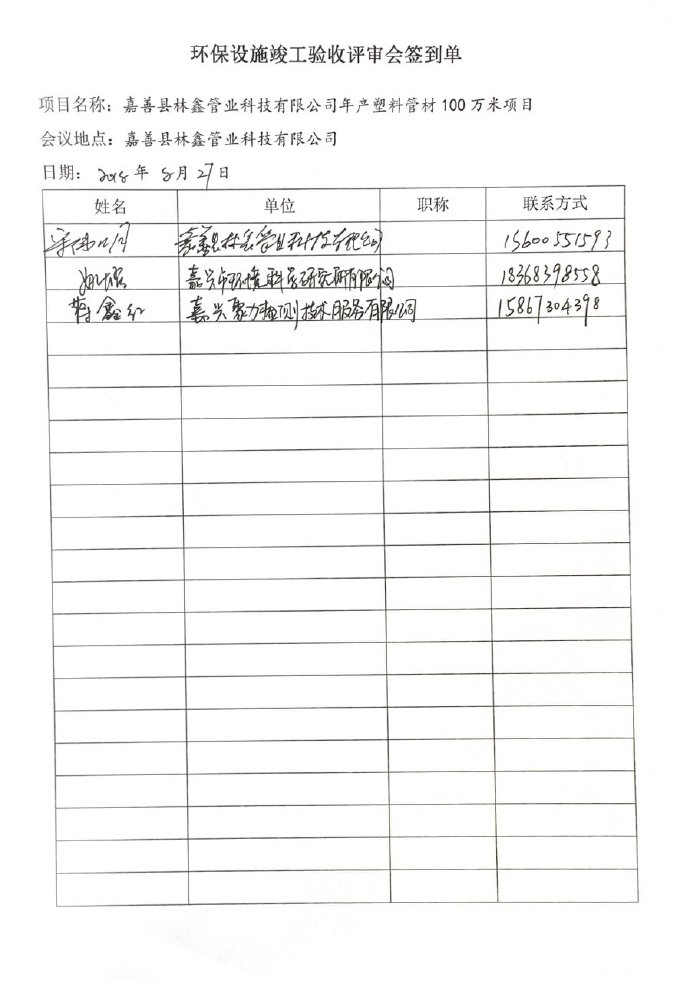 环保设施竣工验收评审会签到单
项目名称：嘉善县林鑫管业科技有限公司年产塑料管材100万米项目
会议地点：嘉善县林鑫管业科技有限公司
日期：2018年8月27日
姓名 单位 职称 联系方式
嘉善县林鑫管业科技有限公司 15600551593
嘉兴市环境科学研究所有限公司 18368398558
蒋鑫红 嘉兴聚力检测技术服务有限公司 15867304398